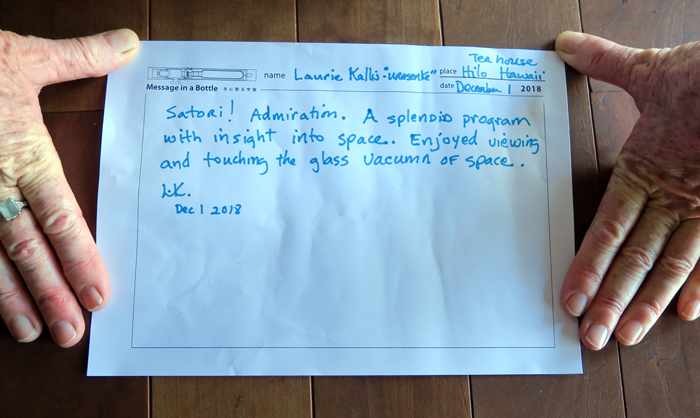 Tea house
name Laurie Kallis-"urasenke" place Hilo Hawaii
Message in a Bottle 手に取る宇宙 date December 1 2018
Satori! Admiration. A splendid program
with insight into space. Enjoyed viewing
and touching the glass vacumn of space.
L.K.
Dec 1 2018